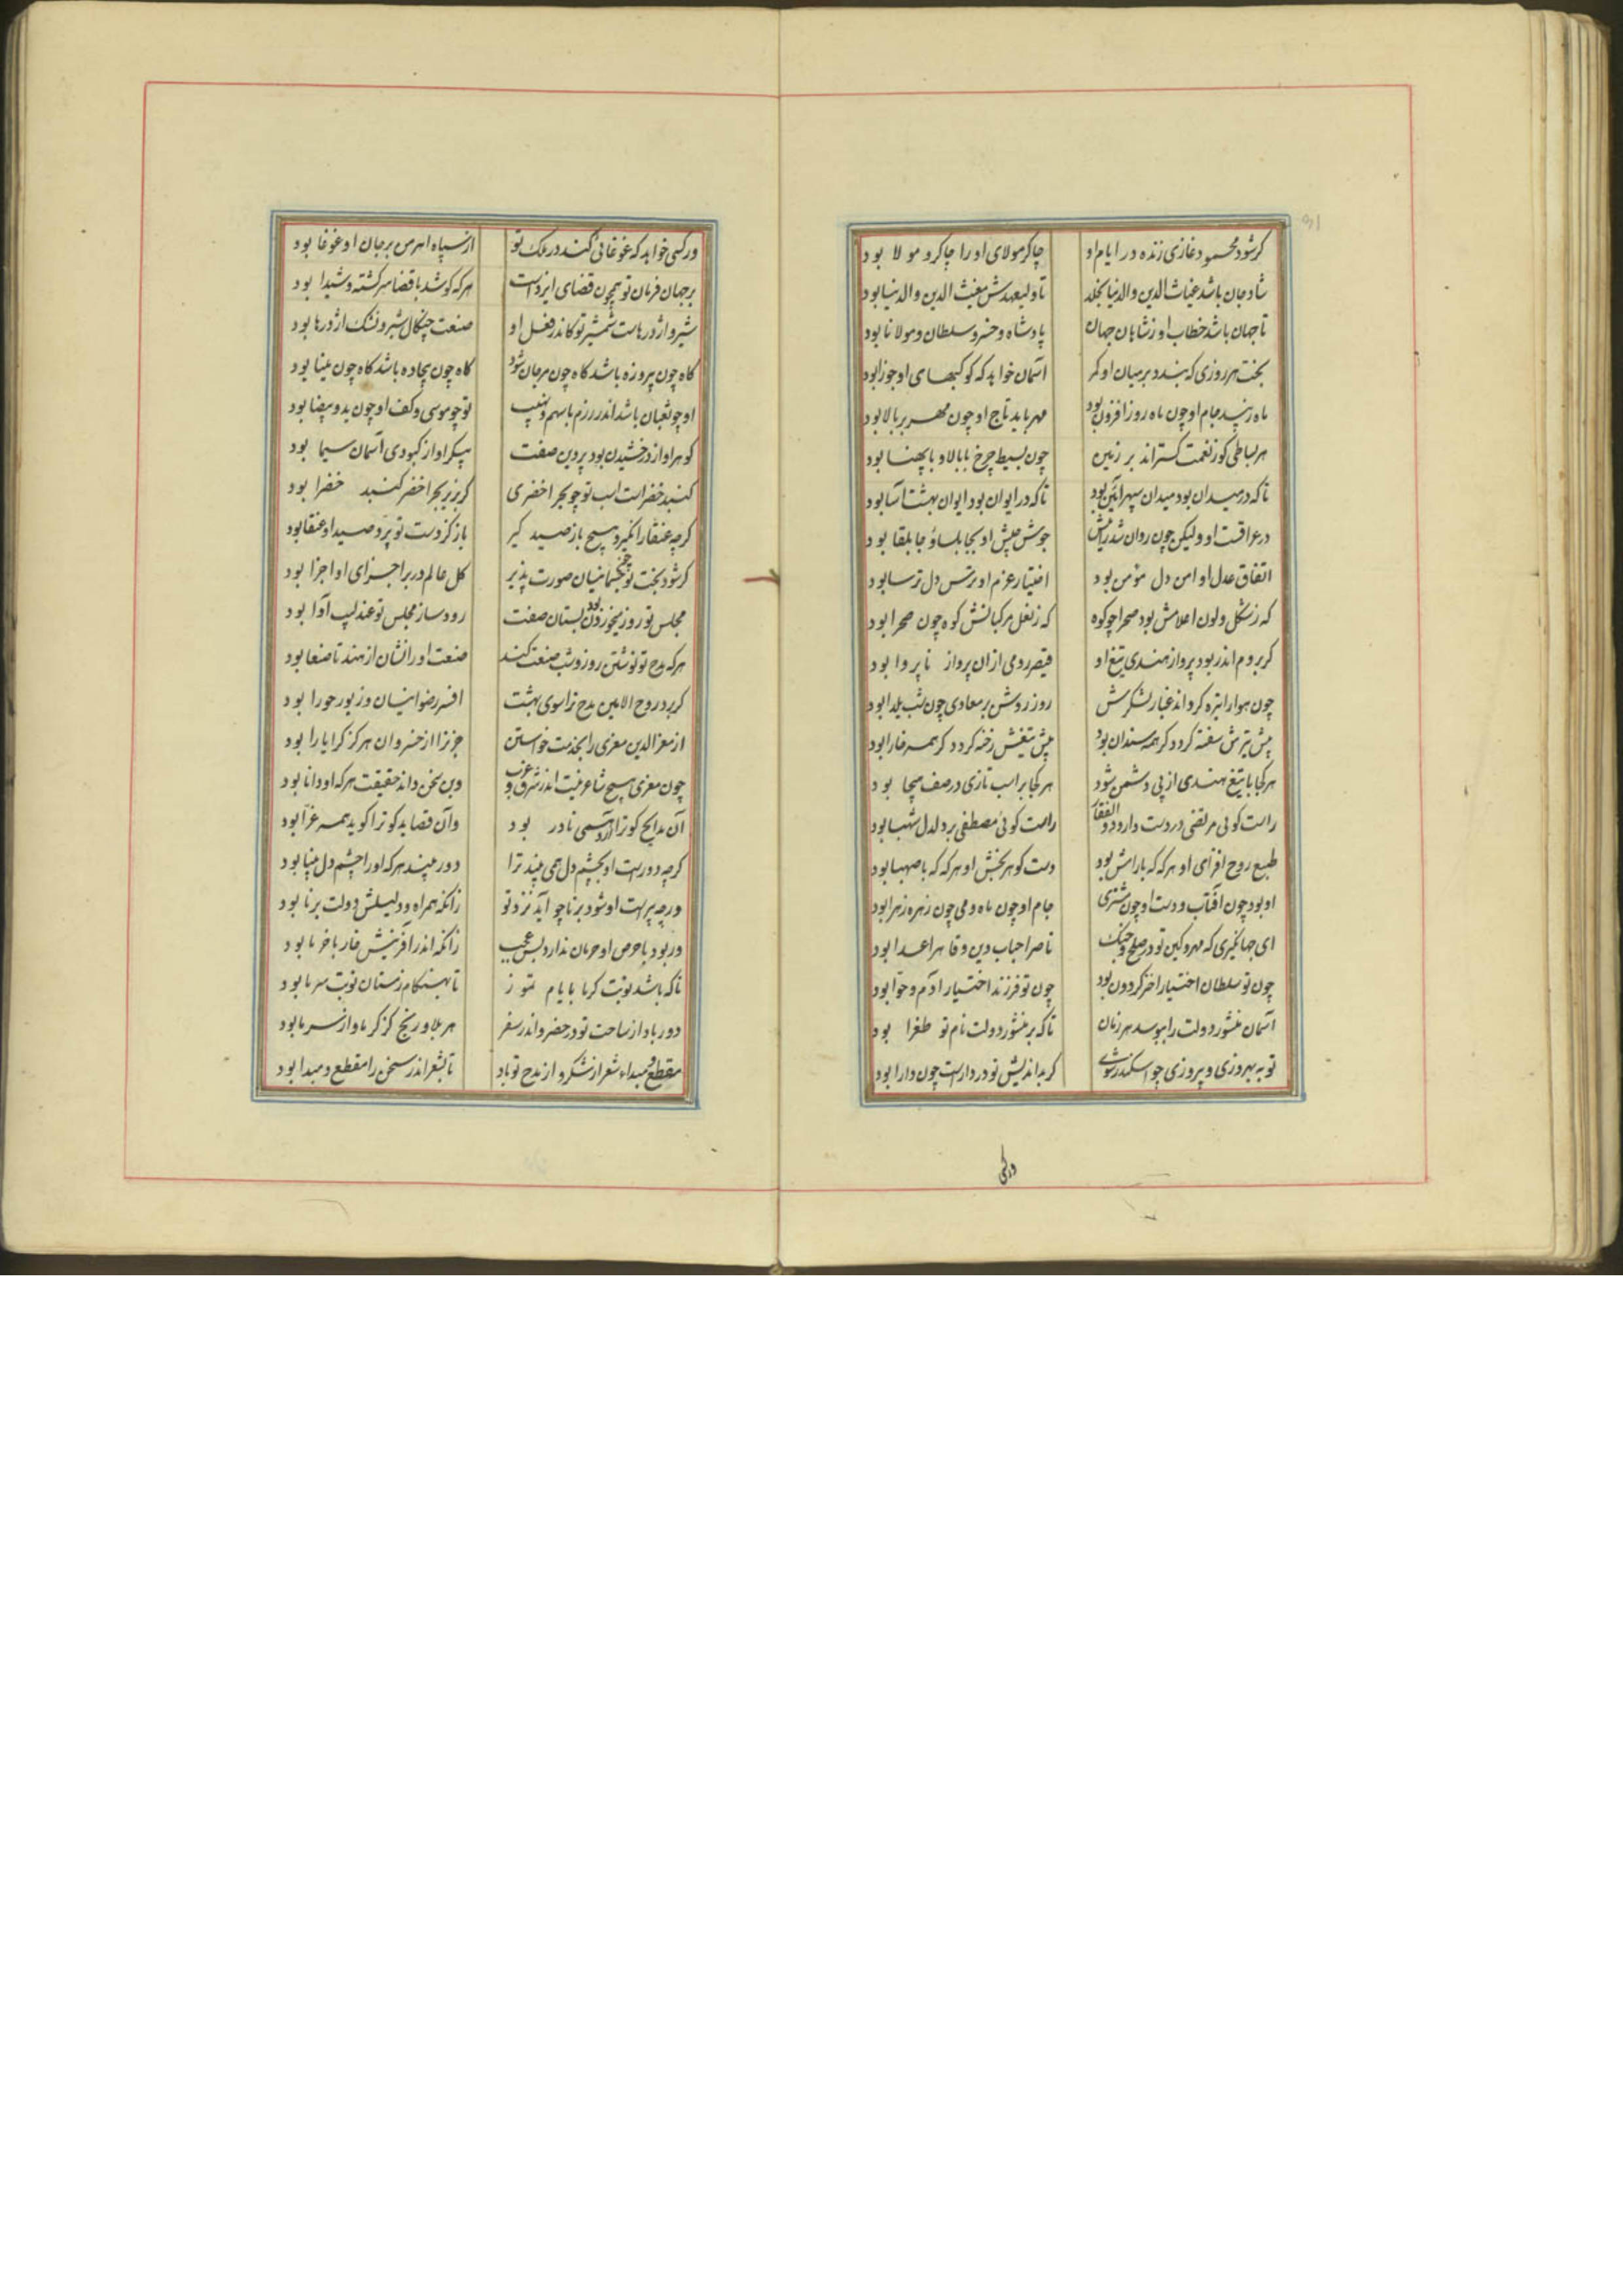 کرشود محمود غازی زنده در ایام او چاکر مولای او را چاکر و مولا بود
شادمان باشد غیاث الدین والدنیا بخلد تا ولیعهدش مغیث الدین والدنیا بود
تا جهان باشد خطاب او ز شاهان جهان پادشاه و خسرو سلطان و مولانا بود
بخت هر روزی که بندد بر میان او کمر آسمان خواهد که کوکبهای او جوزا بود
ماه زیبد جام او چون ماه روز افزون بود مهر باید تاج او چون مهر بر بالا بود
هر بساطی کوز نعمت کستراند بر زمین چون بسیط چرخ با بالا و با پهنا بود
تا که در میدان بود میدان سپهر آئین بود تا که در ایوان بود ایوان بهشت آسا بود
در عراقست او ولیکن چون روان شد جوش جیش او بجابلسا و جابلقا بود
اتفاق عدل او امن دل مؤمن بود اختیار عزم او ترس دل ترسا بود
که ز شکل و لون اعلامش بود صحرا چو کوه که ز نعل مرکبانش کوه چون صحرا بود
کر بروم اندر بود پرواز هندی تیغ او قیصر رومی ازان پرواز ناپروا بود
چون هوا را تیره کرداند غبار لشکرش روز روشن بر معادی چون شب یلدا بود
پیش تیرش سفته کردد کر همه سندان بود پیش تیغش رخنه کردد کر همه خارا بود
هر کجا با تیغ هندی از پی دشمن شود هر کجا بر اسب تازی در صف هیجا بود
راست کوئی مرتضی در دست دارد ذوالفقار راست کوئی مصطفی بر دلدل شهبا بود
طبع روح افزای او هر که که با رامش بود دست کوهر بخش او هر که که با صهبا بود
او بود چون آفتاب و دست او چون مشتری جام او چون ماه و می چون زهره زهرا بود
ای جهانگیری که مهر و کین تو در صلح و جنک ناصر احباب دین و قاهر اعدا بود
چون تو سلطان اختیار اختر کردون بود چون تو فرزند اختیار آدم و حوا بود
آسمان منشور دولت را ببوسد هر زمان تا که بر منشور دولت نام تو طغرا بود
تو به بهروزی و پیروزی چو اسکندر شوی کر بداندیش تو در دارست چون دارا بود
ورکسی
ور کسی خواهد که غوغائی کند در ملک تو از سپاه اهرمن بر جان او غوغا بود
بر جهان فرمان تو همچون قضای ایزدست هر که کوشد با قضا سرکشته و شیدا بود
شیر و اژدرهاست شمشیر تو کاندر فعل او صنعت چنکال شیر و نشک اژدرها بود
کاه چون پیروزه باشد کاه چون مرجان شود کاه چون بیجاده باشد کاه چون مینا بود
او چو ثعبان باشد اندر رزم با سهم و نهیب تو چو موسی و کف او چون ید و بیضا بود
کوهر او از درخشیدن بود پروین صفت پیکر او از کبودی آسمان سیما بود
کنبد خضراست اسب تو چو بحر اخضری کر بزیر بحر اخضر کنبد خضرا بود
کرچه عنقا را نکیرد هیچ باز صید کیر باز کز دست تو پرد صید او عنقا بود
کر شود بخت تو چون جسمانیان صورت پذیر کل عالم در بر اجزای او اجزا بود
مجلس تو روز میخوردن بود بستان صفت رود ساز مجلس تو عندلیب آوا بود
هر که مدح تو نوشتن روز و شب صنعت کند صنعت او را نشان از هند تا صنعا بود
کر برد روح الامین مدح ترا سوی بهشت افسر رضوانیان و زیور حورا بود
از معز الدین معزی را بخدمت خواستن جز ترا از خسروان هرکز کرا یارا بود
چون معزی هیچ شاعر نیست اندر شرق و غرب وین سخن داند حقیقت هر که او دانا بود
آن مدایح کو ترا آرد همی نادر بود وآن قصاید کو ترا کوید همه غرا بود
کرچه دورست او بچشم دل همی بیند ترا دور بیند هر که او را چشم دل بینا بود
ورچه پیرست او شود برنا چو آید نزد تو زانکه همراه و دلیلش دولت برنا بود
ور بود با حرص او حرمان ندارد بس عجب زانکه اندر آفرینش خار با خرما بود
تا که باشد نوبت کرما بایام تموز تا بهنکام زمستان نوبت سرما بود
دور بادا ز ساحت تو در حضر و اندر سفر هر بلا و رنج کز کرما و از سرما بود
مقطع و مبداء شعر از شکر و از مدح تو باد تا بشعر اندر سخن را مقطع و مبدا بود